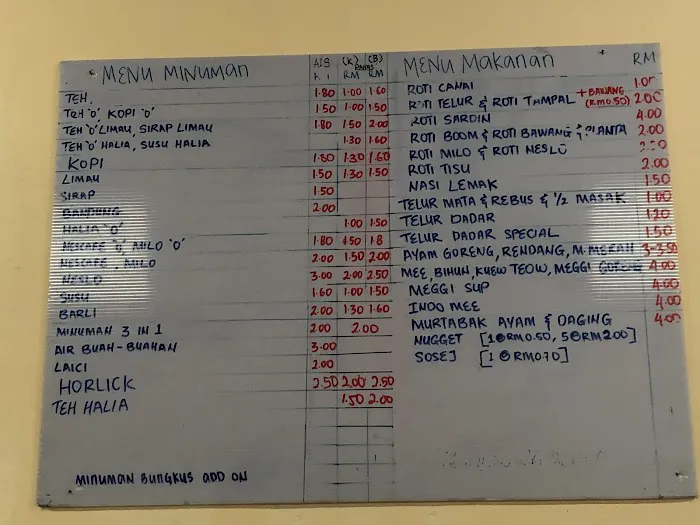 MENU MINUMAN
AIS (K) (B)
PANAS
RM RM
TEH, 1.80 1.00 1.60
TEH 'O' KOPI 'O' 1.50 1.00 1.50
TEH 'O' LIMAU, SIRAP LIMAU 1.80 1.50 2.00
TEH 'O' HALIA, SUSU HALIA 1.30 1.60
KOPI 1.80 1.30 1.60
LIMAU 1.50 1.30 1.50
SIRAP 1.50
BANDUNG 2.00
HALIA 'O' 1.00 1.50
NESCAFE 'O', MILO 'O' 1.80 1.50 1.8
NESCAFE, MILO 2.00 1.50 2.00
NESLO 3.00 2.00 2.50
SUSU 1.60 1.00 1.50
BARLI 2.00 1.30 1.60
MINUMAN 3 IN 1 2.00 2.00
AIR BUAH-BUAHAN 3.00
LAICI 2.00
HORLICK 2.50 2.00 2.50
TEH HALIA 1.50 2.00
MINUMAN BUNGKUS ADD ON
MENU MAKANAN RM
ROTI CANAI 1.00
ROTI TELUR & ROTI TAMPAL +BAWANG (RM0.50) 2.00
ROTI SARDIN 4.00
ROTI BOOM & ROTI BAWANG & PLANTA 2.00
ROTI MILO & ROTI NESLO
ROTI TISU 2.00
NASI LEMAK 1.50
TELUR MATA & REBUS & 1/2 MASAK 1.00
TELUR DADAR 1.20
TELUR DADAR SPECIAL 1.50
AYAM GORENG, RENDANG, M.MERAH 3-3.50
MEE, BIHUN, KUEW TEOW, MEGGI GORENG 4.00
MEGGI SUP 4.00
INDO MEE 4.00
MURTABAK AYAM & DAGING 4.00
NUGGET [1@RM0.50, 5@RM2.00]
SOSEJ [1@RM0.70]